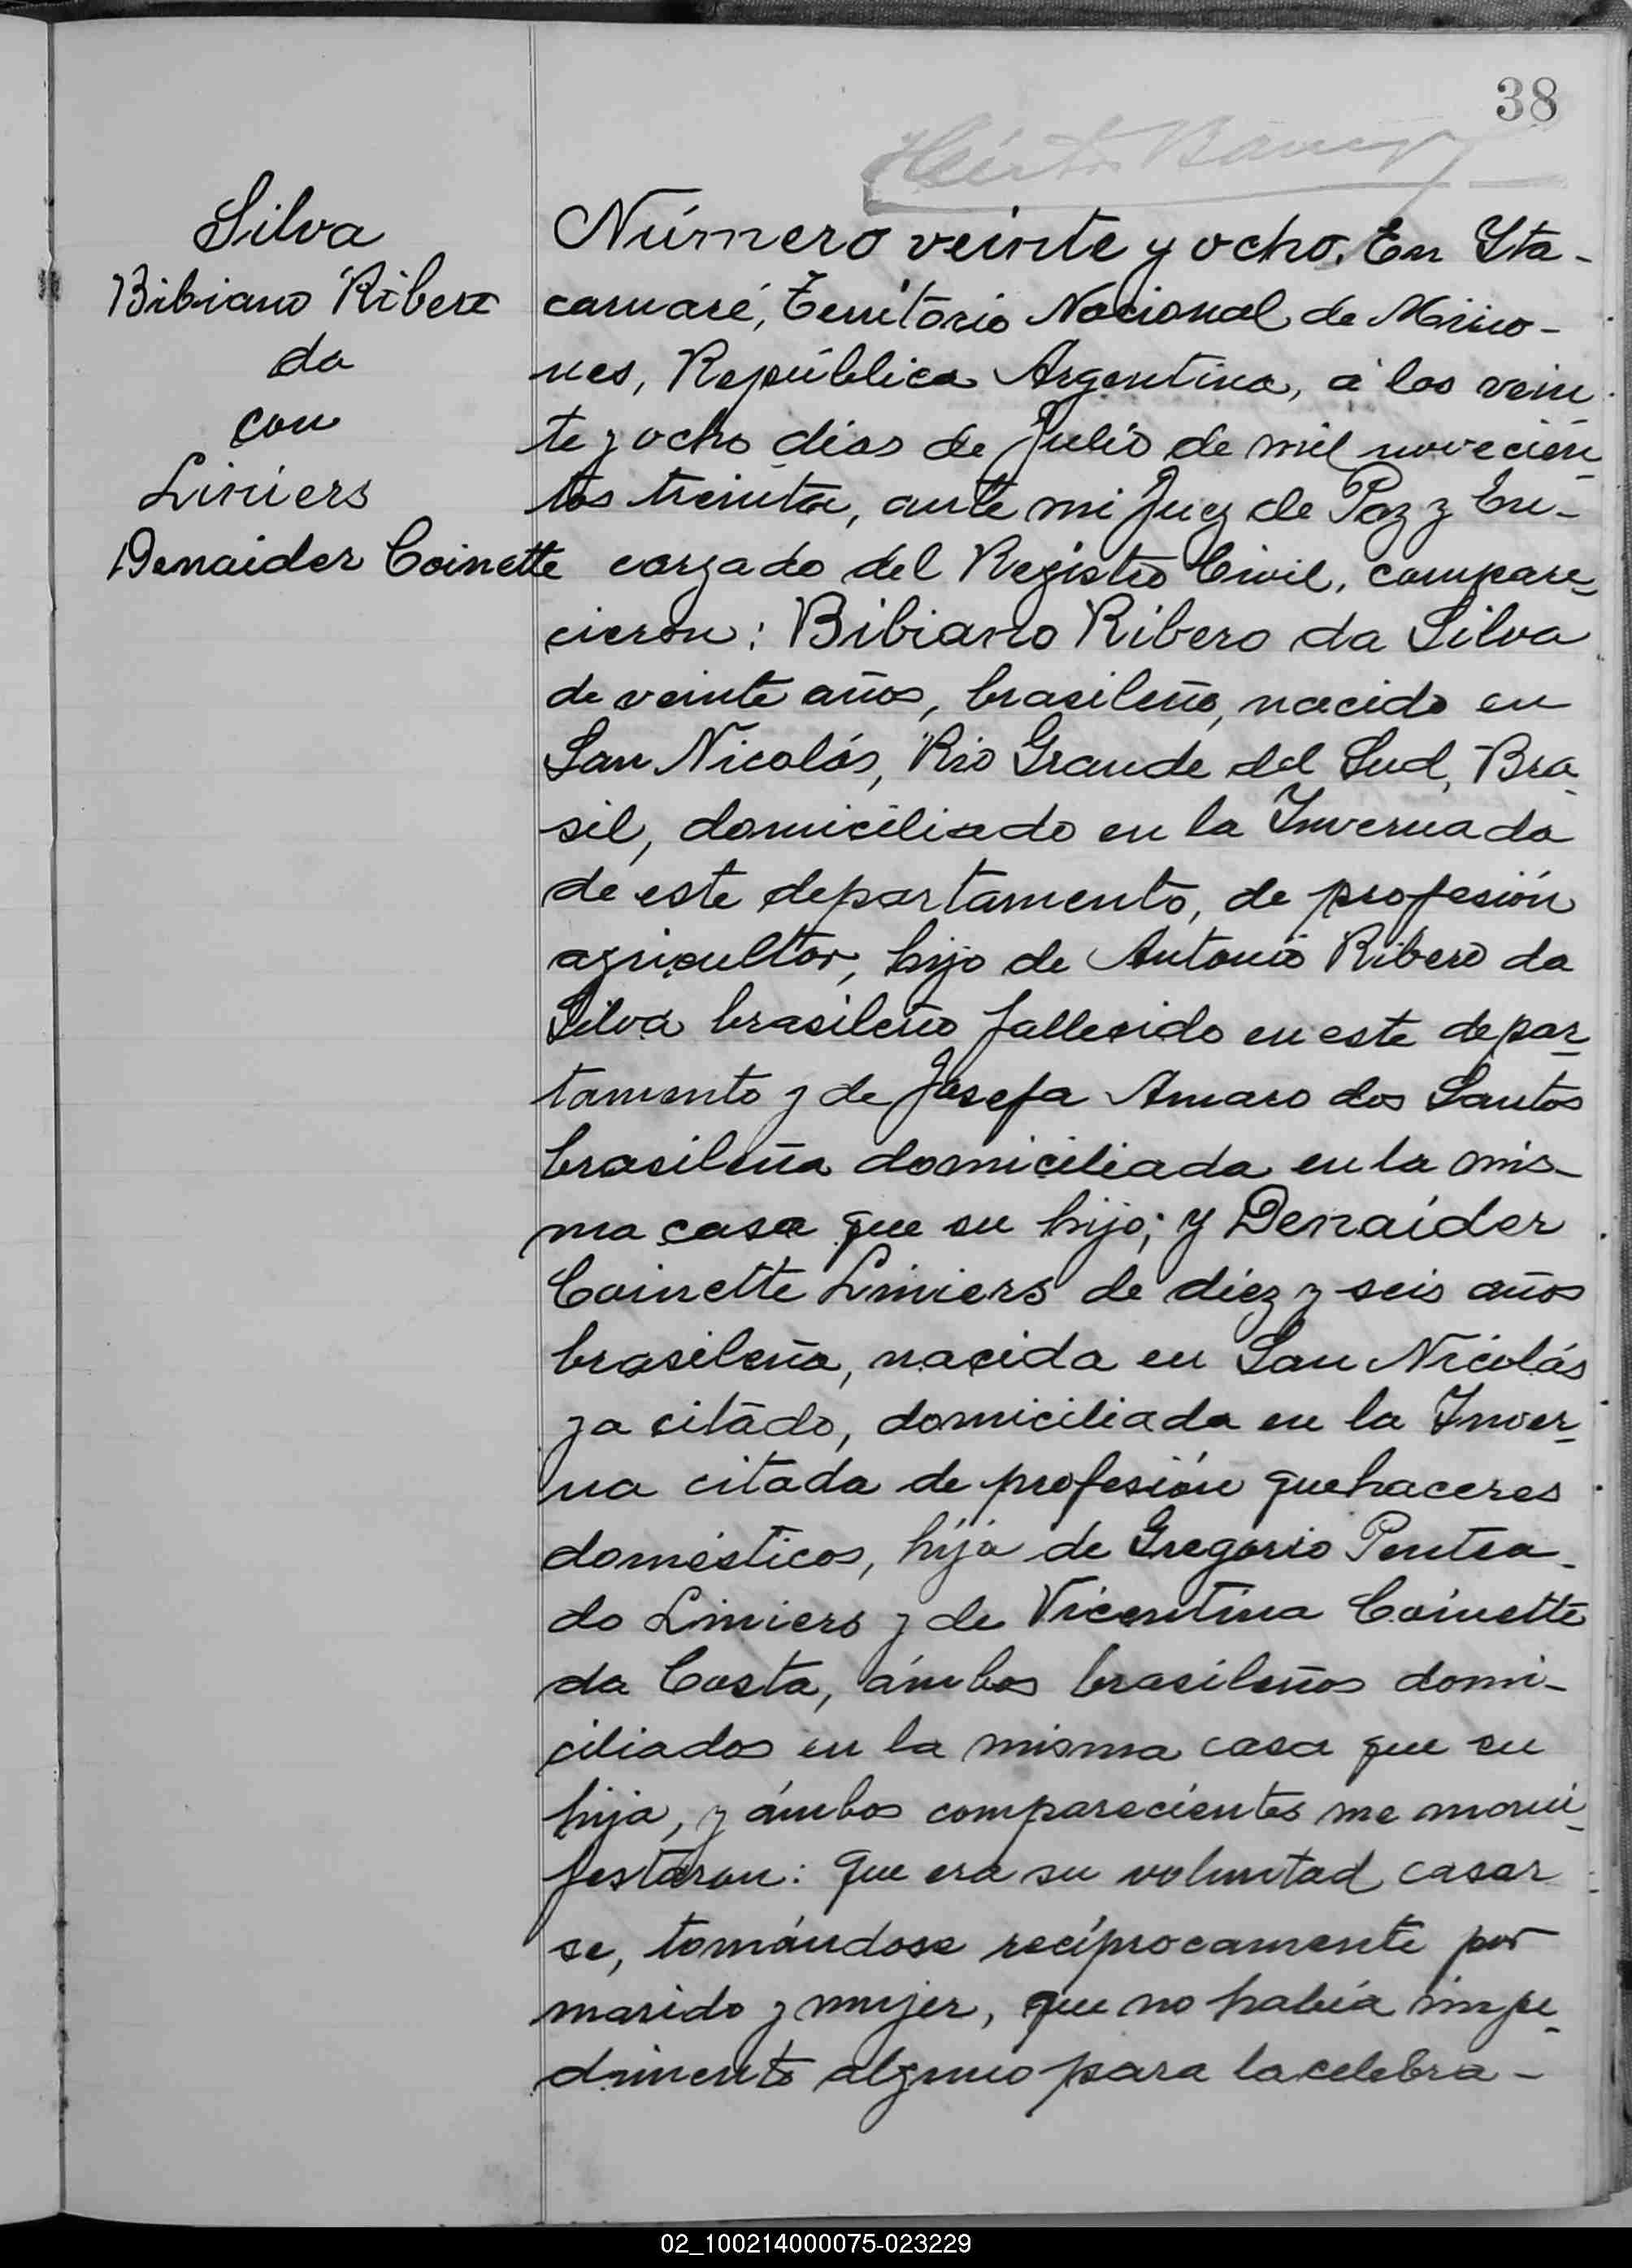 38
Silva
Bibiano Ribero
da
con
Liniers
Denaider Coinette
Número veinte y ocho. En Ita-
caruaré, Territorio Nacional de Misio-
nes, República Argentina, á los vein
te y ocho días de Julio de mil novecien
tos treinta, ante mi Juez de Paz y En-
cargado del Registro Civil, compare
cieron: Bibiano Ribero da Silva
de veinte años, brasileño, nacido en
San Nicolás, Rio Grande del Sud, Bra
sil, domiciliado en la Invernada
de este departamento, de profesión
agricultor, hijo de Antonio Ribero da
Silva brasileño fallecido en este depar
tamento y de Josefa Amaro dos Santos
brasileña domiciliada en la mis-
ma casa que su hijo; y Denaider
Coinette Liniers de diez y seis años
brasileña, nacida en San Nicolás
ya citado, domiciliada en la Inver
na citada de profesión quehaceres
domésticos, hija de Gregorio Pentea-
do Liniers y de Vicentina Coinette
da Costa, ámbos brasileños domi-
ciliados en la misma casa que su
hija, y ámbos comparecientes me mani
festaron: que era su voluntad casar
se, tomándose recíprocamente por
marido y mujer, que no había impe
dimento alguno para la celebra-
02_100214000075-023229